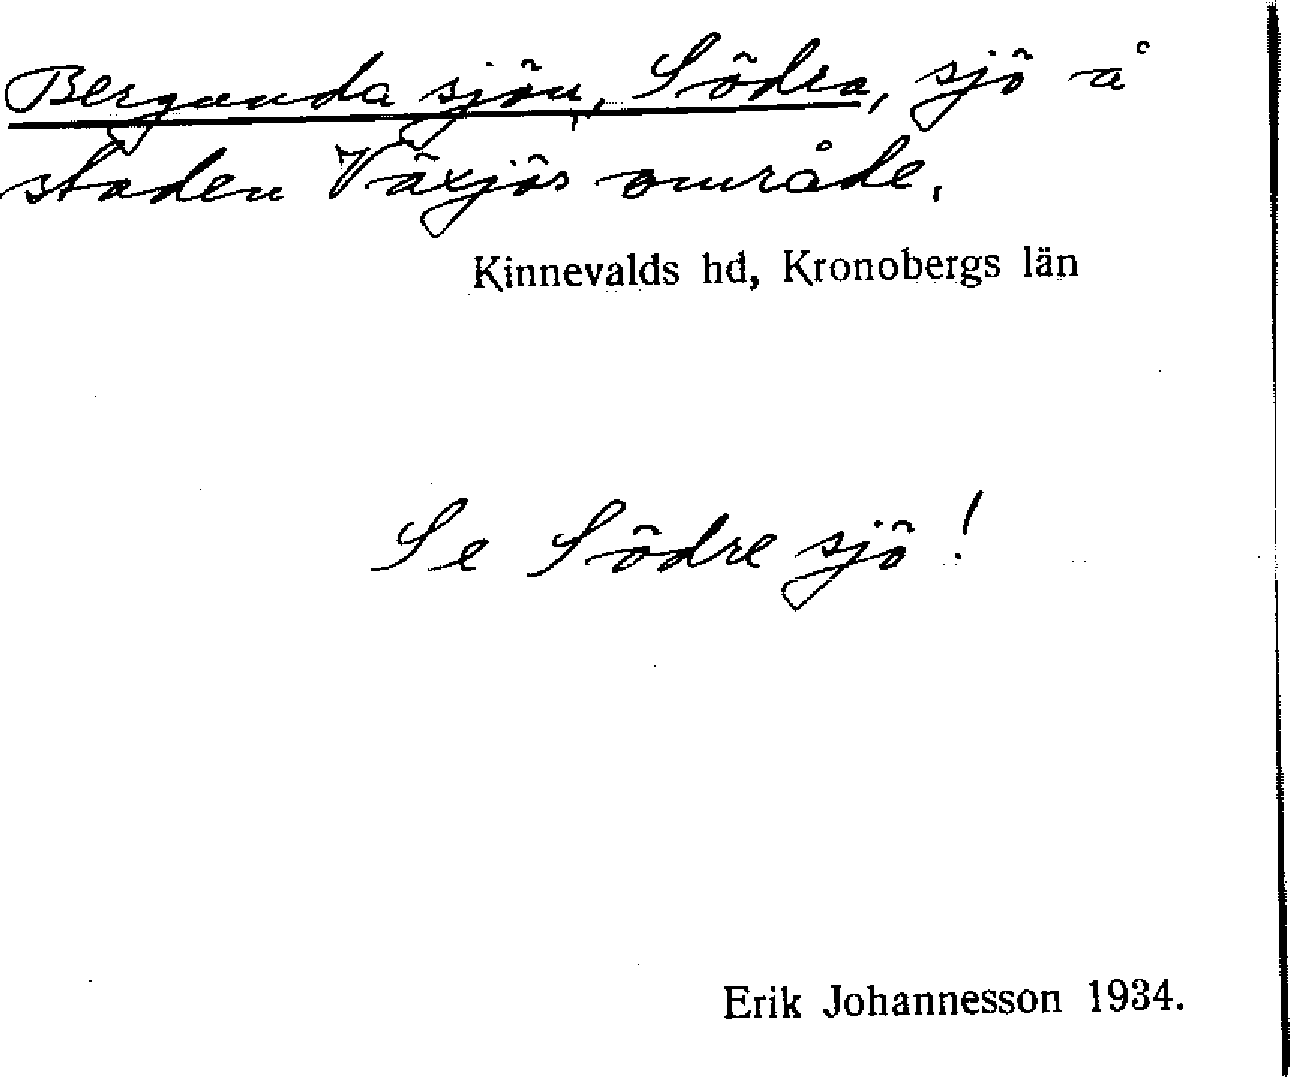 Bergundasjön, Södra, sjö å
staden Växjös område.
Kinnevalds hd, Kronobergs län
Se Södre sjö!
Erik Johannesson 1934.